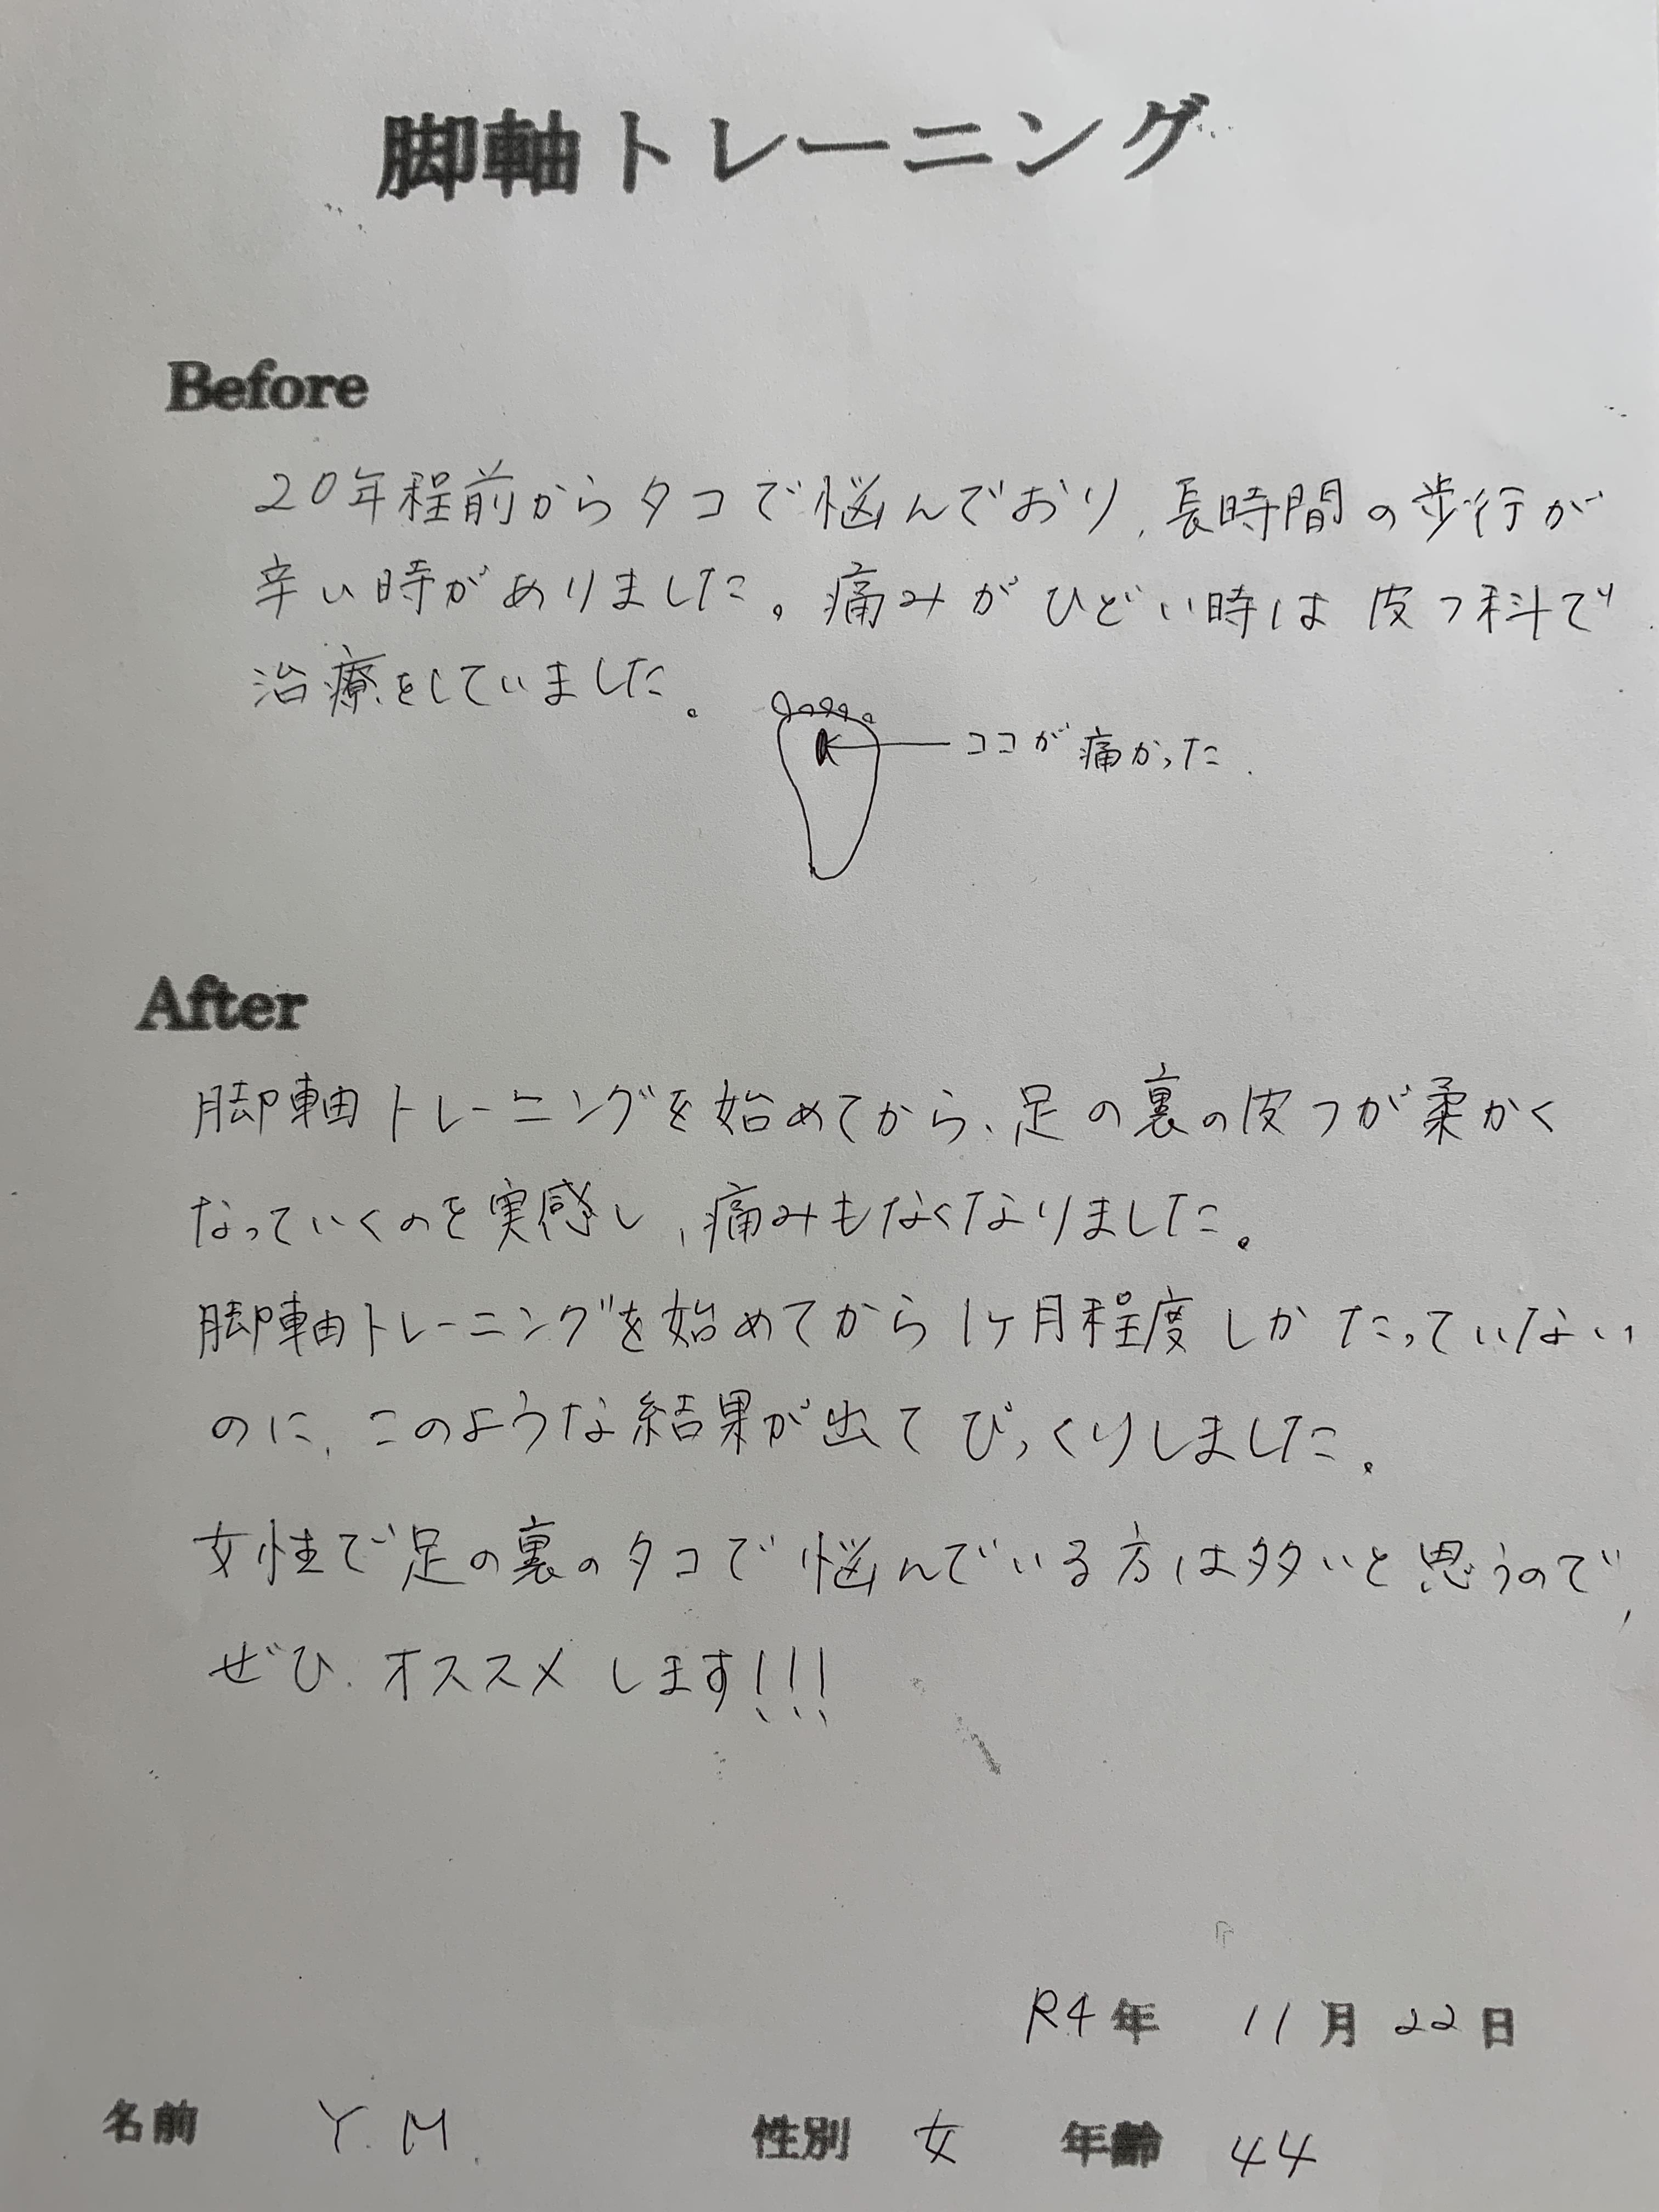 脚軸トレーニング
Before
20年程前からタコで悩んでおり、長時間の歩行が
辛い時がありました。痛みがひどい時は皮フ科で
治療をしていました。
ココが痛かった.
After
脚軸トレーニングを始めてから、足の裏の皮フが柔かく
なっていくのを実感し、痛みもなくなりました。
脚軸トレーニングを始めてから1ヶ月程度しかたっていない
のに、このような結果が出てびっくりしました。
女性で足の裏のタコで悩んでいる方は多いと思うので、
ぜひ、オススメします!!!
R4年 11月22日
名前 Y.M. 性別 女 年齢 44